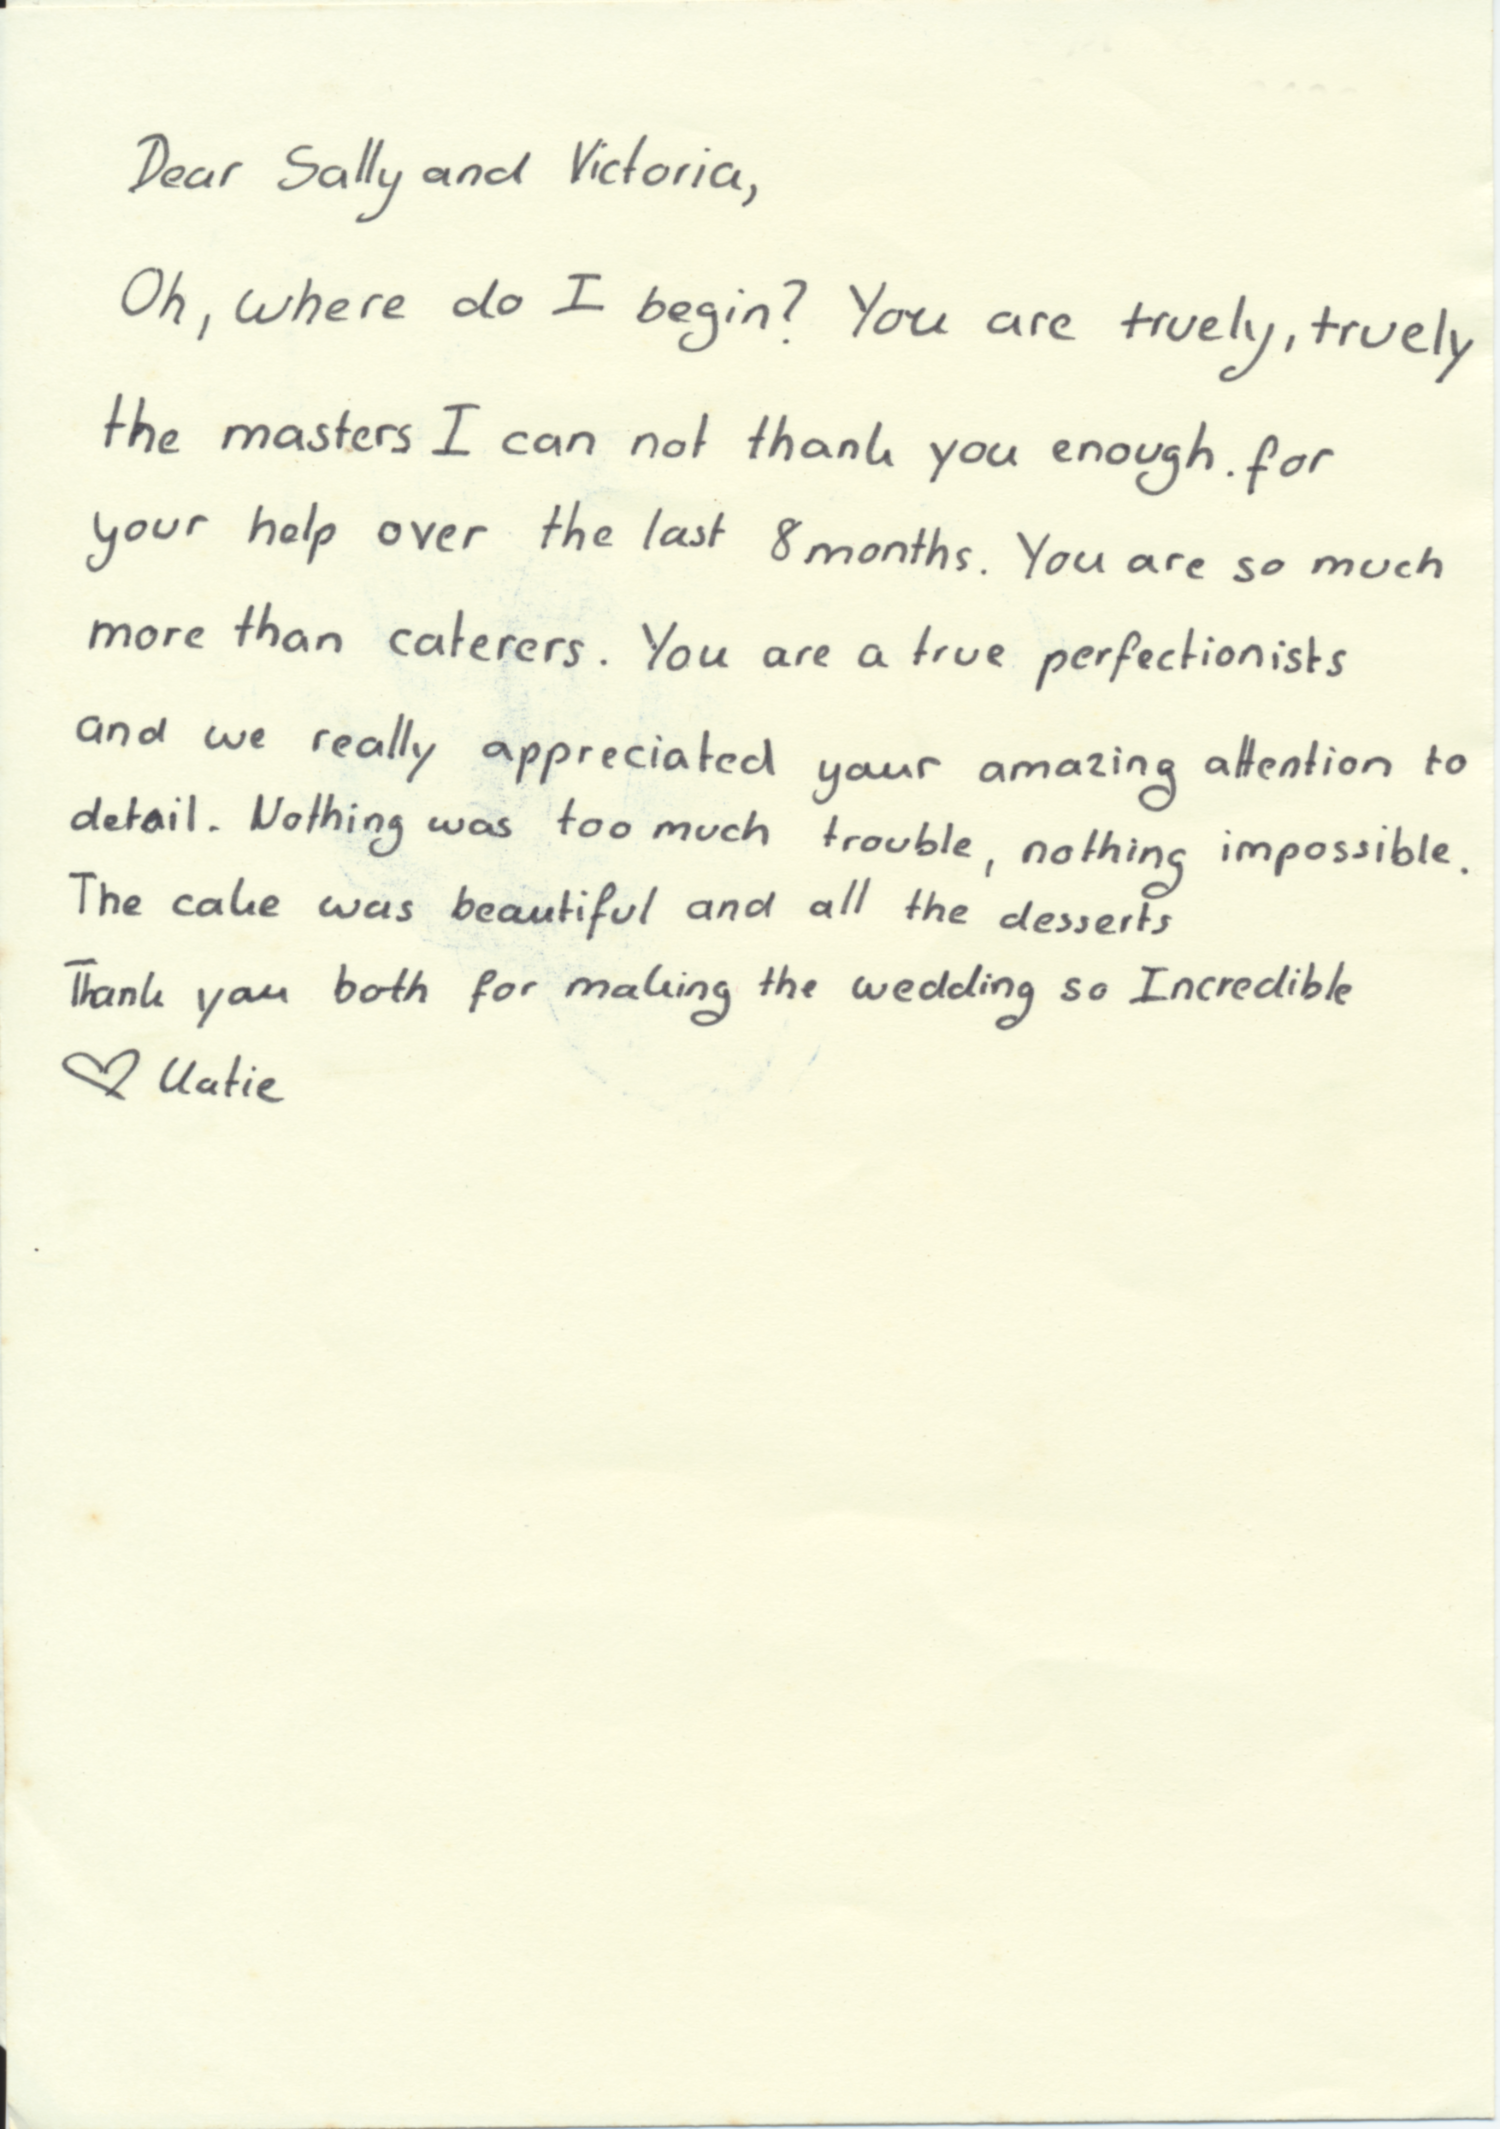 Dear Sally and Victoria,
Oh, where do I begin? You are truely, truely
the masters I can not thank you enough. for
your help over the last 8 months. You are so much
more than caterers. You are a true perfectionists
and we really appreciated your amazing attention to
detail. Nothing was too much trouble, nothing impossible.
The cake was beautiful and all the desserts
Thank you both for making the wedding so Incredible
♡ Katie